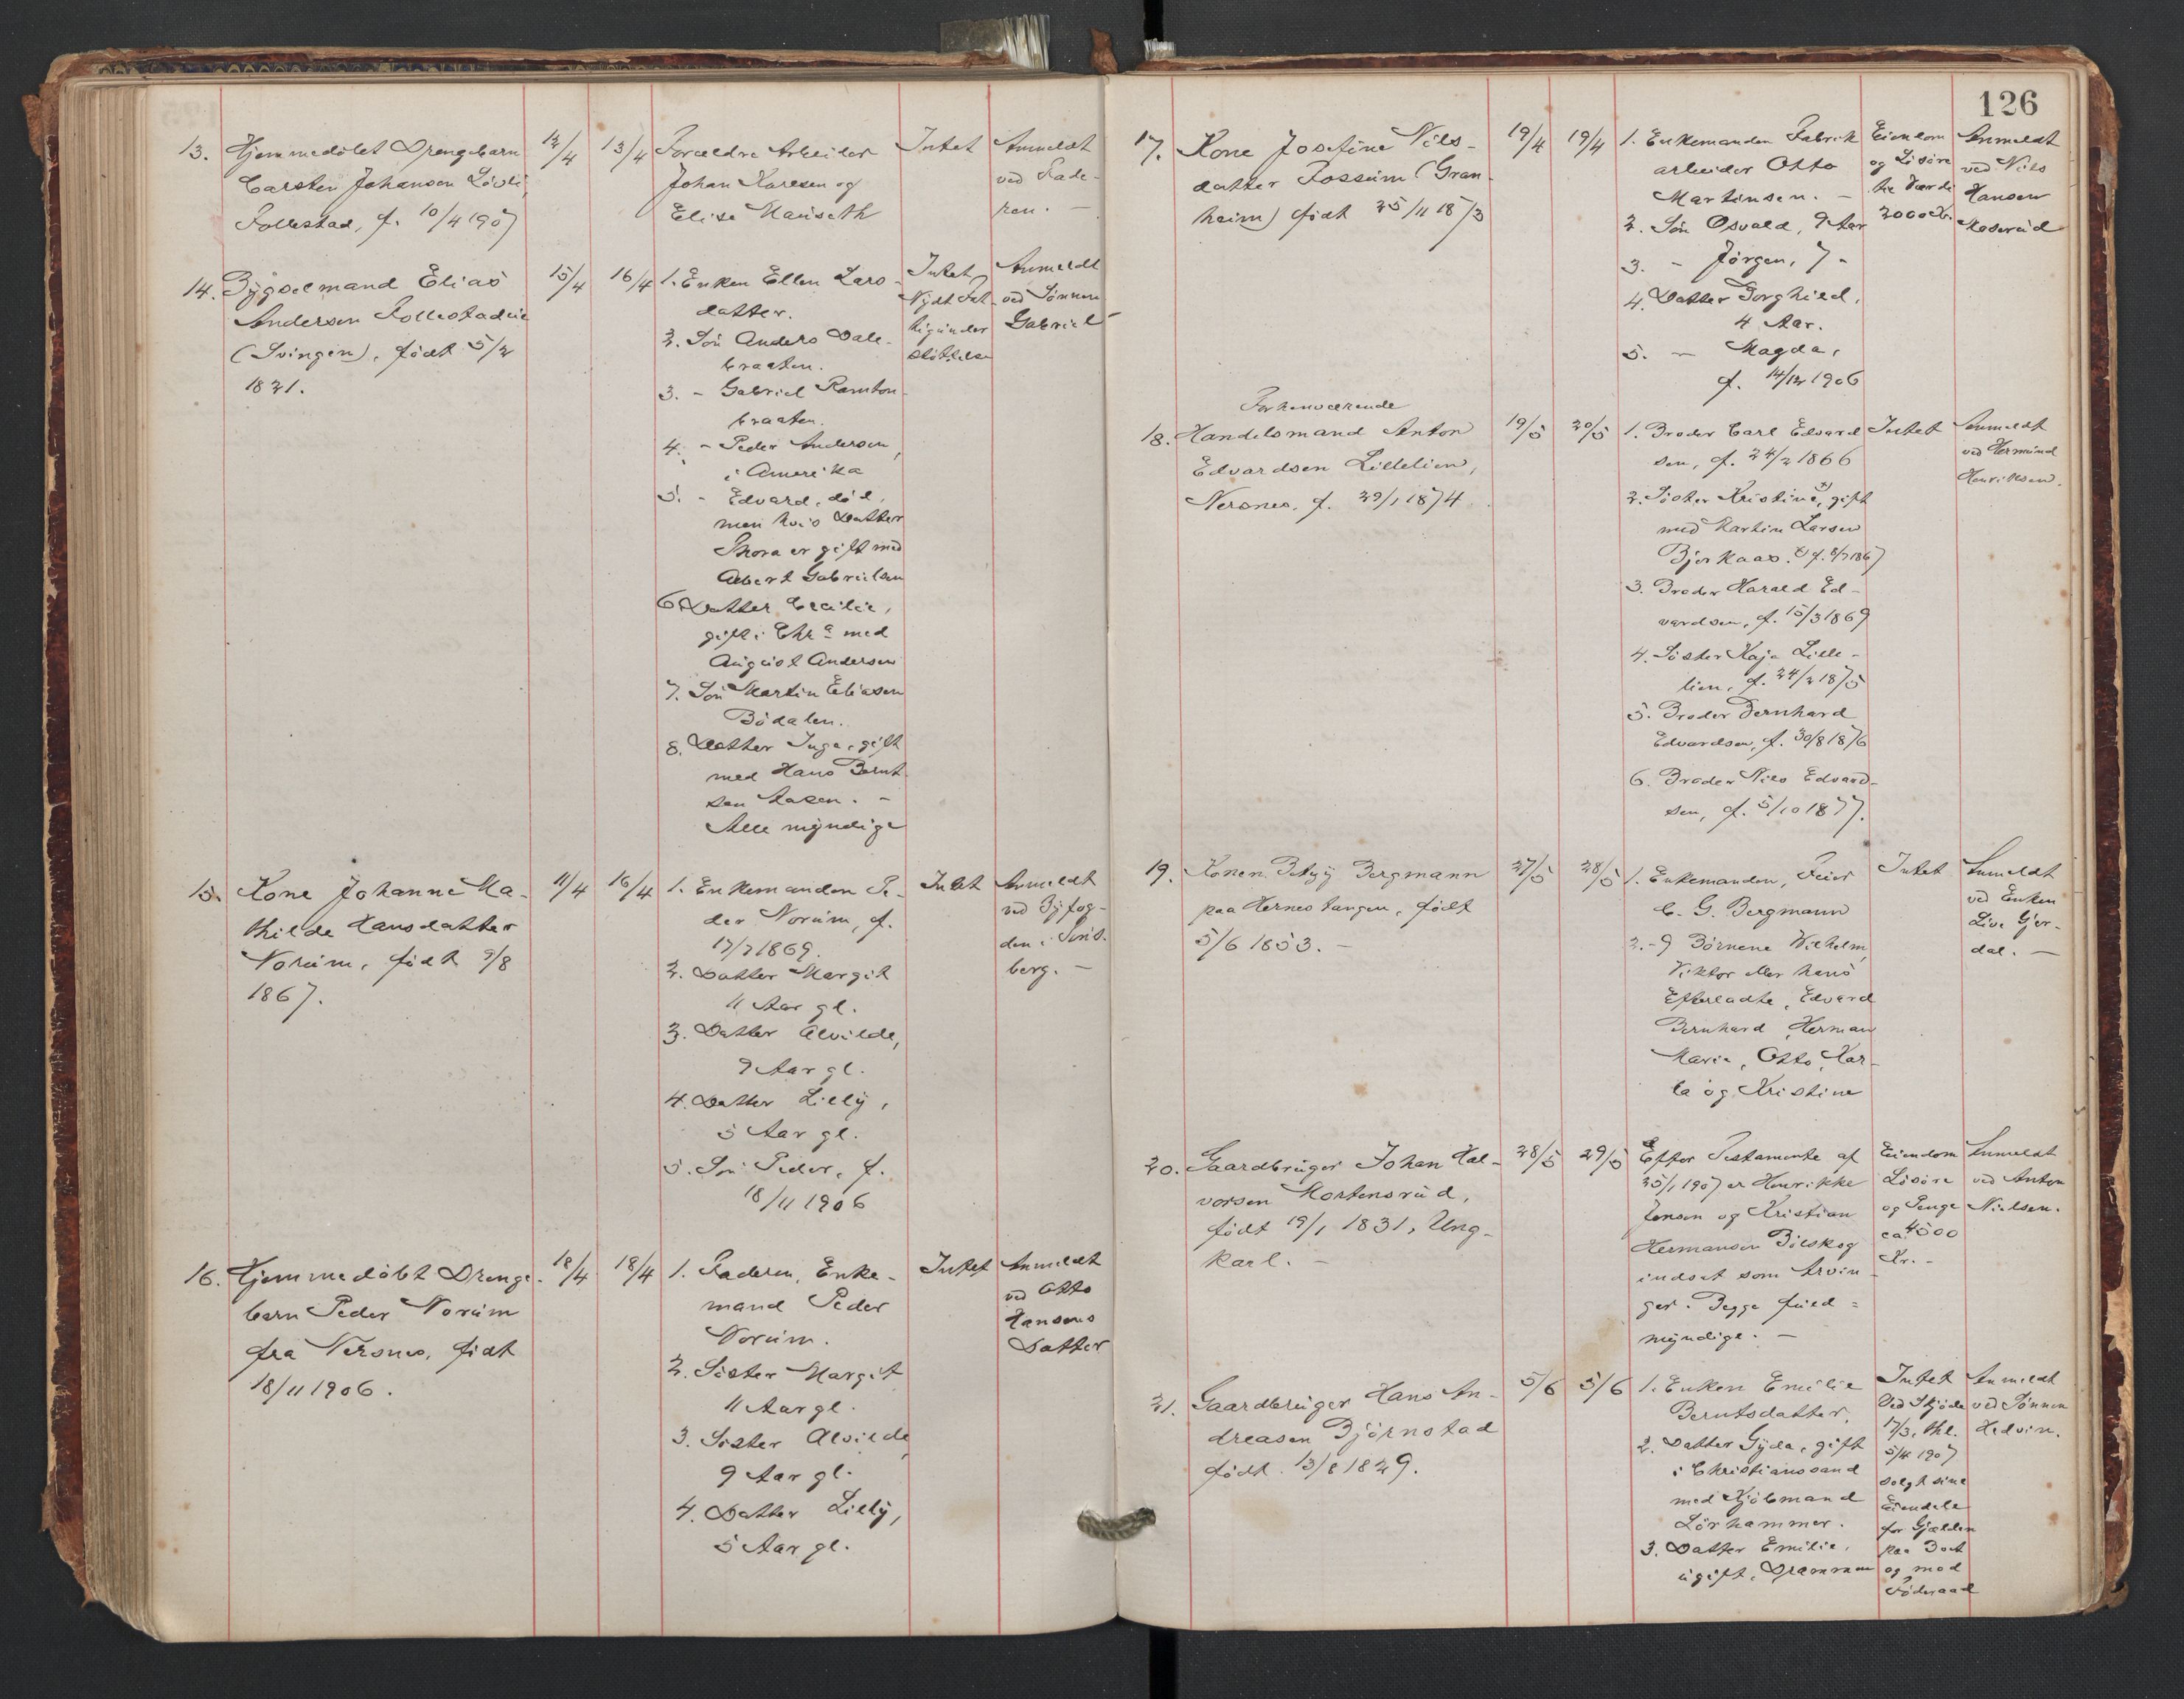 126
13.
Hjemmedöbt Drengebarn
Carsten Johansen Lövli,
Follestad, f. 10/4 1907
12/4
13/4
Forældre Arbeider
Johan Karlsen og
Elise
Intet
Anmeldt
ved Fade-
ren. —
14.
Bygselmand Elias
Andersen Follestadeie
(Svingen), födt 5/2
1821.
15/4
16/4
1. Enken Ellen Lars-
datter.
2. Sön Anders Dale-
braaten.
3. - Gabriel Ramton-
braaten.
4. - Peder Andersen,
i Amerika
5. - Edvard, död,
men hvis Datter
Thora er gift med
Albert Gabrielsen
6. Datter Cecilie,
gift i Chra med
August Andersen
7. Sön Martin Eliasen
Bödalen.
8. Datter Inga, gift
med Hans Bernt-
sen Aasen. -
Alle myndige
Intet
Nydt Fat-
tigunder-
støttelse
Anmeldt
ved Sönnen
Gabriel
15.
Kone Johanne Ma-
thilde Hansdatter
Norum, födt 9/8
1867.
11/4
16/4
1. Enkemanden Pe-
der Norum, f.
17/7 1869.
2. Datter Margit
11 Aar gl.
3. Datter Alvilde,
9 Aar gl.
4. Datter Lilly,
5 Aar gl.
5. Sön Peder, f.
18/11 1906
Intet
Anmeldt
ved Byfog-
den i
berg. —
16.
Hjemmedöbt Drenge-
barn Peder Norum
fra Nersnes, födt
18/11 1906.
18/4
18/4
1. Faderen, Enke-
mand Peder
Norum.
2. Söster Margit
11 Aar gl.
3. Söster Alvilde
9 Aar gl.
4. Datter Lilly,
5 Aar gl.
Intet
Anmeldt
ved Otto
Hansens
Datter
17.
Kone Josefine Nils-
datter Fossum (Gran-
heim) födt 25/11 1873
19/4
19/4
1. Enkemanden Fabrik
arbeider Otto
Martinsen. —
2. Sön Osvald, 9 Aar
3. - Jörgen, 7 -
4. Datter Borghild,
4 Aar.
5. — Magda,
f. 14/12 1906
Eiendom
og Lösöre
til Værdi
2000 Kr.
Anmeldt
ved Nils
Hansen
Maserud
18.
Forhenværende
Handelsmand Anton
Edvardsen Lillelien,
Nersnes, f. 29/1 1874
19/5
20/5
1. Broder Carl Edvard
sen, f. 24/2 1866
2. Söster Kristine x), gift
med Martin Larsen
Bjerkaas. x) f. 8/7 1867
3. Broder Harald Ed-
vardsen, f. 15/3 1869
4. Söster Kaja Lille-
lien, f. 24/2 1875
5. Broder Bernhard
Edvardsen, f. 30/8 1876
6. Broder Nils Edvard-
sen, f. 5/10 1877.
Intet
Anmeldt
ved Hermund
Henriksen.
19.
Konen Betzy Bergmann
paa Hernestangen, födt
5/6 1853. —
27/5
28/5
1. Enkemanden, Feier
C. G. Bergmann
2.-9 Börnene Wilhelm,
Viktor eller hans
Efterladte, Edvard
Bernhard, Herman
Marie, Otto, Kar-
la og Kristine
Intet
Anmeldt
ved Enken
Live Gjer-
dal. —
20.
Gaardbruger Johan Hal-
vorsen Mortensrud,
födt 19/1 1831, Ung-
karl. —
28/5
29/5
Efter Testamente af
25/1 1907 er Henrikke
Jensen og Kristian
Hermansen Bölskog
indsat som Arvin-
ger. Begge fuld=
myndige. —
Eiendom
Lösöre
og Penge
ca. 4500
Kr. -
Anmeldt
ved Anton
Nielsen.
21.
Gaardbruger Hans An-
dreasen Björnstad
födt 13/8 1829.
5/6
5/6
1. Enken Emilie
Berntsdatter.
2. Datter Gyda, gift
i Christianssand
med Kjöbmand
Lörhammer.
3. Datter Emilie,
ugift, Drammen
Intet
Ved Skjöde
17/3, thl.
5/4 1907
solgt sine
Eiendele
for Gjælden
paa Boet
og mod
Föderaad
Anmeldt
ved Sönnen
Hedvin.